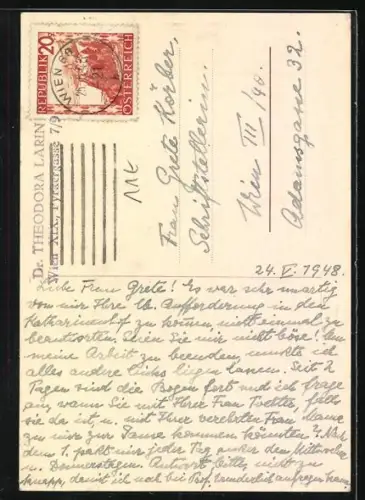 REPUBLIK ÖSTERREICH
20
WIEN
Dr. THEODORA LARIN
Wien XIX., Pyrkergasse 7/9
Frau Grete Körber,
Schriftstellerin.
Wien III /40.
Adamsgasse 32.
24. V. 1948.
Liebe Frau Grete! Es war sehr unartig
von mir Ihre lb. Aufforderung in den
Katharinenhof zu kommen nicht einmal zu
beantworten. Seien Sie mir nicht böse! Um
meine Arbeit zu beenden, musste ich
alles andere links liegen lassen. Seit 2
Tagen sind die Bogen fort und ich frage
an, wann Sie mit Ihrer Frau falls
sie da ist, u. mit Ihrer verehrten Frau Mama
zu mir zur Jause kommen könnten?
dem 1. passt mir jeder Tag ausser den Mittwochen
u. Donnerstagen. Antwort bitte, nicht zu
knapp, damit ich noch bei Prof. anfragen kann.